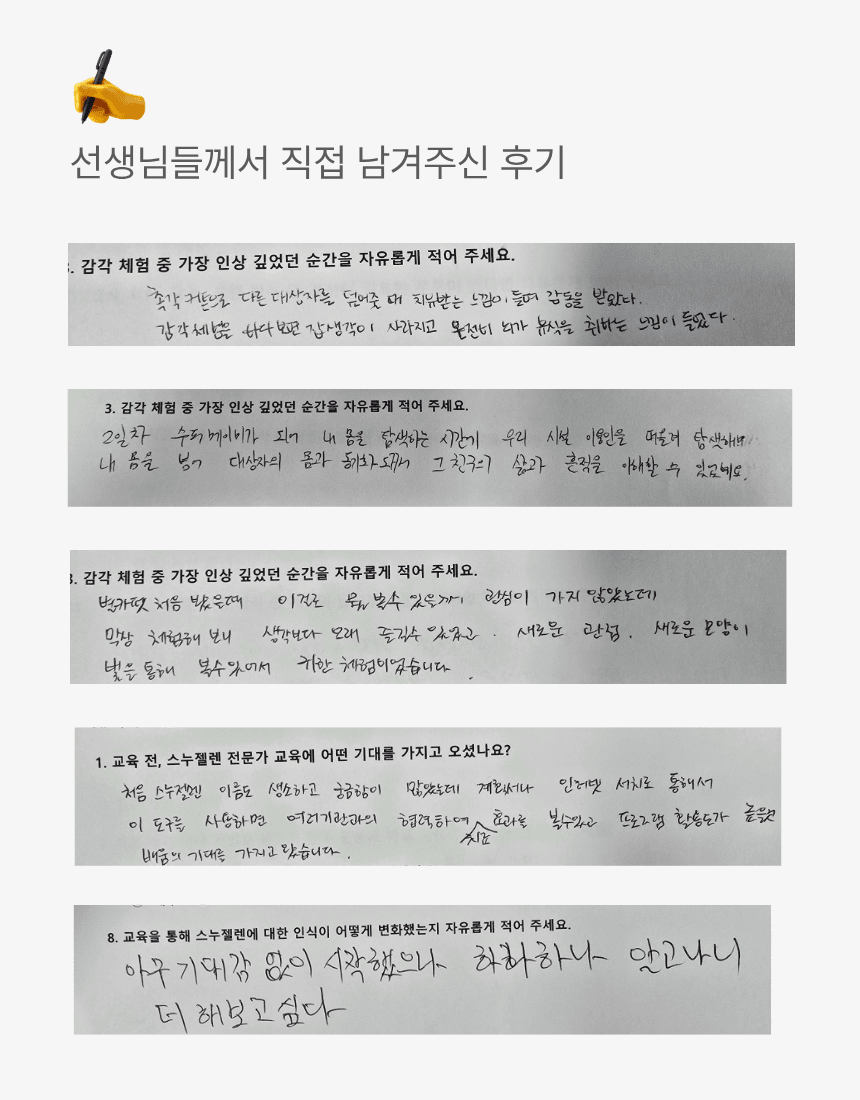 선생님들께서 직접 남겨주신 후기
3. 감각 체험 중 가장 인상 깊었던 순간을 자유롭게 적어 주세요.
촉각 커튼으로 다른 대상자를 덮어줏 때 치유받는 느낌이 들며 감동을 받았다.
감각체험을 하다보면 잡생각이 사라지고 온전히 뇌가 휴식을 취하는 느낌이 들었다.
3. 감각 체험 중 가장 인상 깊었던 순간을 자유롭게 적어 주세요.
2일차 수퍼베이비가 되어 내 몸을 탐색하는 시간에 우리 시설 이용인을 떠올려
내 몸을 대상자의 몸과 동기화 그 친구의 삶과 흔적을 이해할 수 있었네요.
3. 감각 체험 중 가장 인상 깊었던 순간을 자유롭게 적어 주세요.
처음 봤을때 이걸로 뭘 볼수 있을까 관심이 가지 않았는데
막상 체험해 보니 생각보다 오래 즐길수 있었고. 새로운 관점, 새로운 모양이
빛을 통해 볼수있어서 귀한 체험이었습니다.
1. 교육 전, 스누젤렌 전문가 교육에 어떤 기대를 가지고 오셨나요?
처음 스누젤렌 이름도 생소하고 궁금함이 많았는데 인터넷 서치로 통해서
이 도구를 사용하면 여러기관과의 협력하여 치료 효과를 볼수있고 프로그램 활용도가
배움의 기대를 가지고 왔습니다.
8. 교육을 통해 스누젤렌에 대한 인식이 어떻게 변화했는지 자유롭게 적어 주세요.
아무 기대감 없이 시작했으나 하나하나 알고나니
더 해보고 싶다